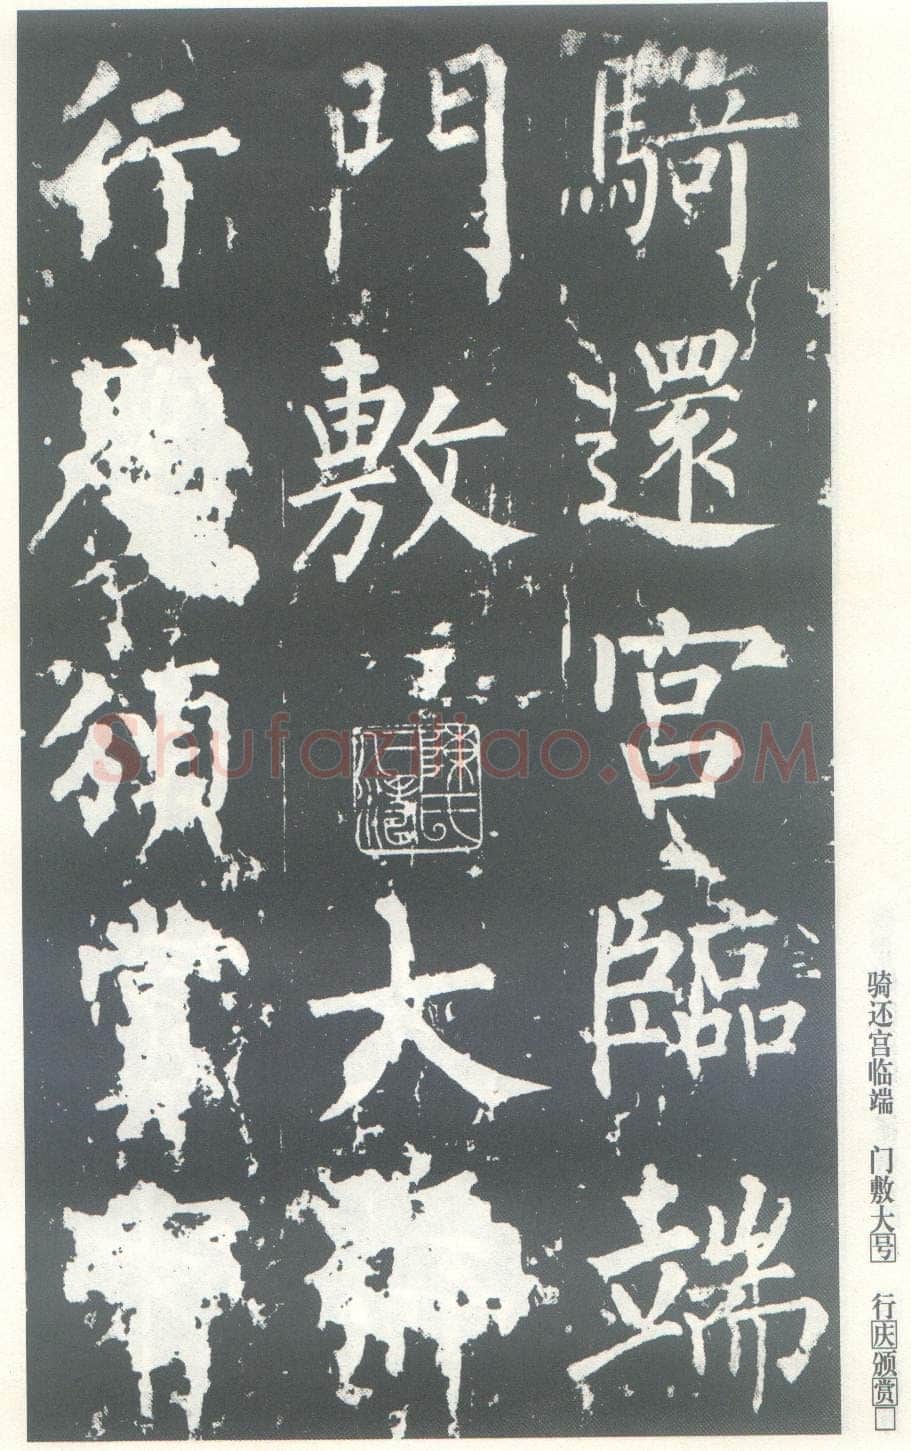 騎還宮臨端
門敷大
行慶頒賞
陳氏
Shufaziliao.COM
骑还宫临端 门敷大号 行庆颁赏□